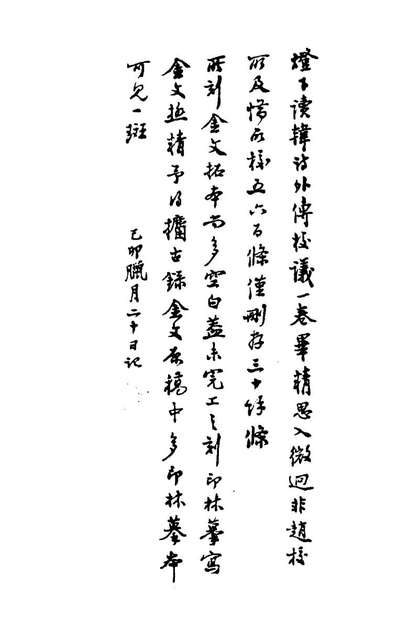 燈下讀韓詩外傳校議一卷畢精思入微迥非趙校
所及惜所採五六百條僅刪存三十餘條
所刻金文拓本尚多空白蓋未完工之刻印林摹寫
金文極精予得攟古錄金文原稿中多印林摹本
可見一斑
己卯臘月二十日記